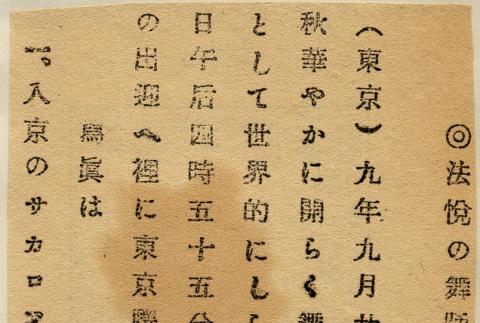 ◎法悦の舞踊
（東京）九年九月廿
秋華やかに開らく舞
として世界的にしら
日午后四時五十五分
の出迎へ裡に東京驛
寫眞は
一、入京のサカロフ